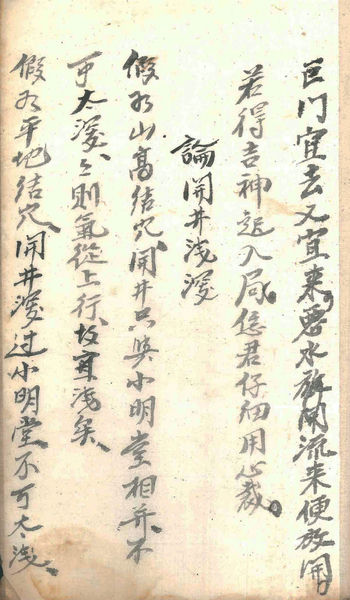 巨门宜去又宜来。要水放開流来便放開。
若得吉神迎入局。憑君仔细用心裁。
論開井浅深
假如山高結穴、開井只與小明堂相并、不
可太深、深則氣從上行、故宜浅矣、
假如平地結穴、開井深过小明堂、不可太浅、